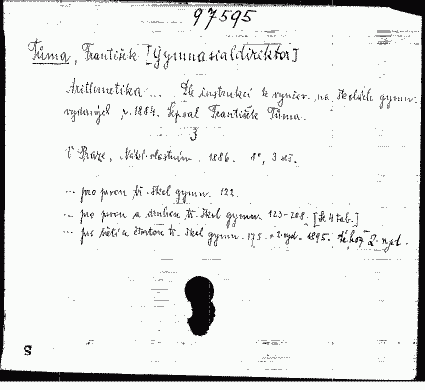 97595
Tůma, František [Gymnasialdirektor]
Arithmetika ... Dle instrukcí k vyučov. na školách gymn.
vydaných r. 1884. Sepsal František Tůma.
3
V Praze, Nákl. vlastním. 1886. 8°, 3 sv.
— pro první tř. škol gymn. 122.
— pro první a druhou tř. škol gymn. 123-208. [Se 4 tab.]
— pro třetí a čtvrtou tř. škol gymn. 175. 2. vyd. 1895.
S